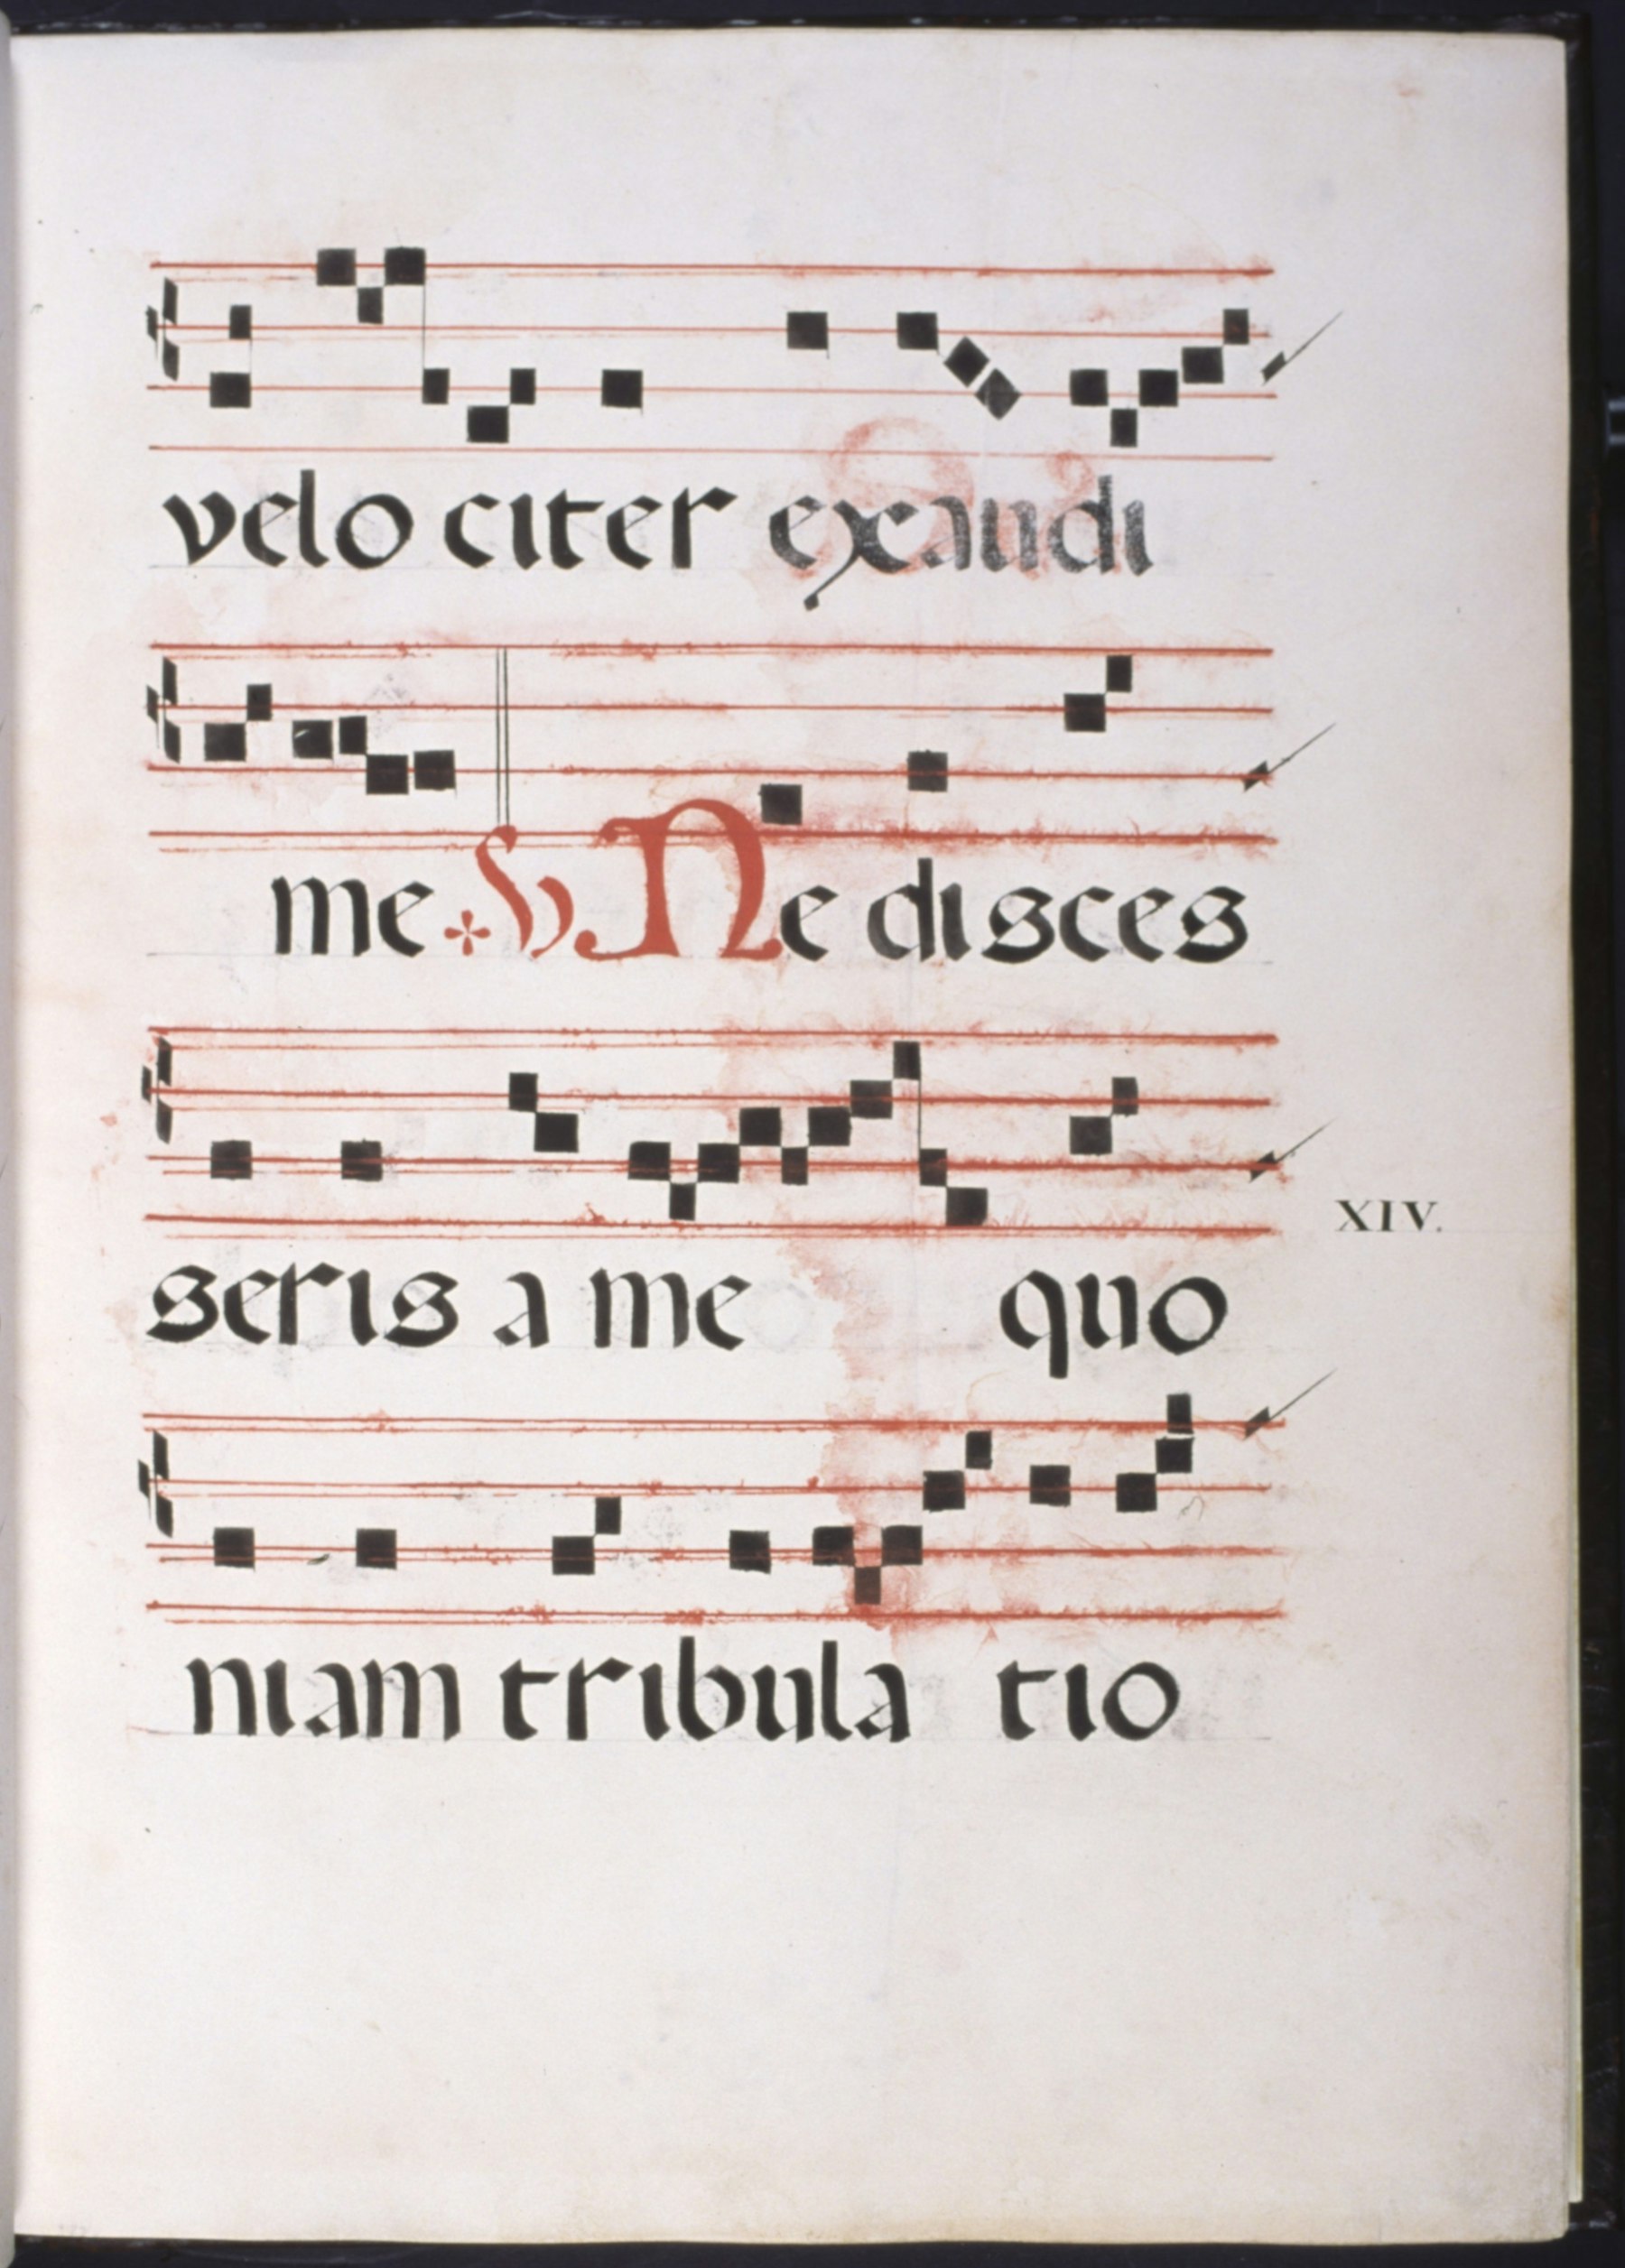 velo citer exaudi
me ℣ Ne disces
seris a me quo
XIV.
niam tribula tio